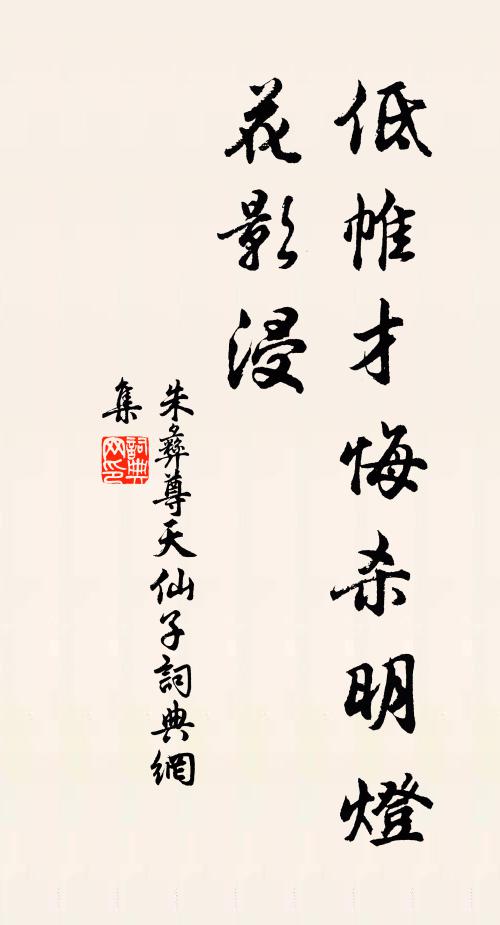 低帷才悔杀明燈
花影浸
朱彝尊天仙子詞典網
集
詞典網印